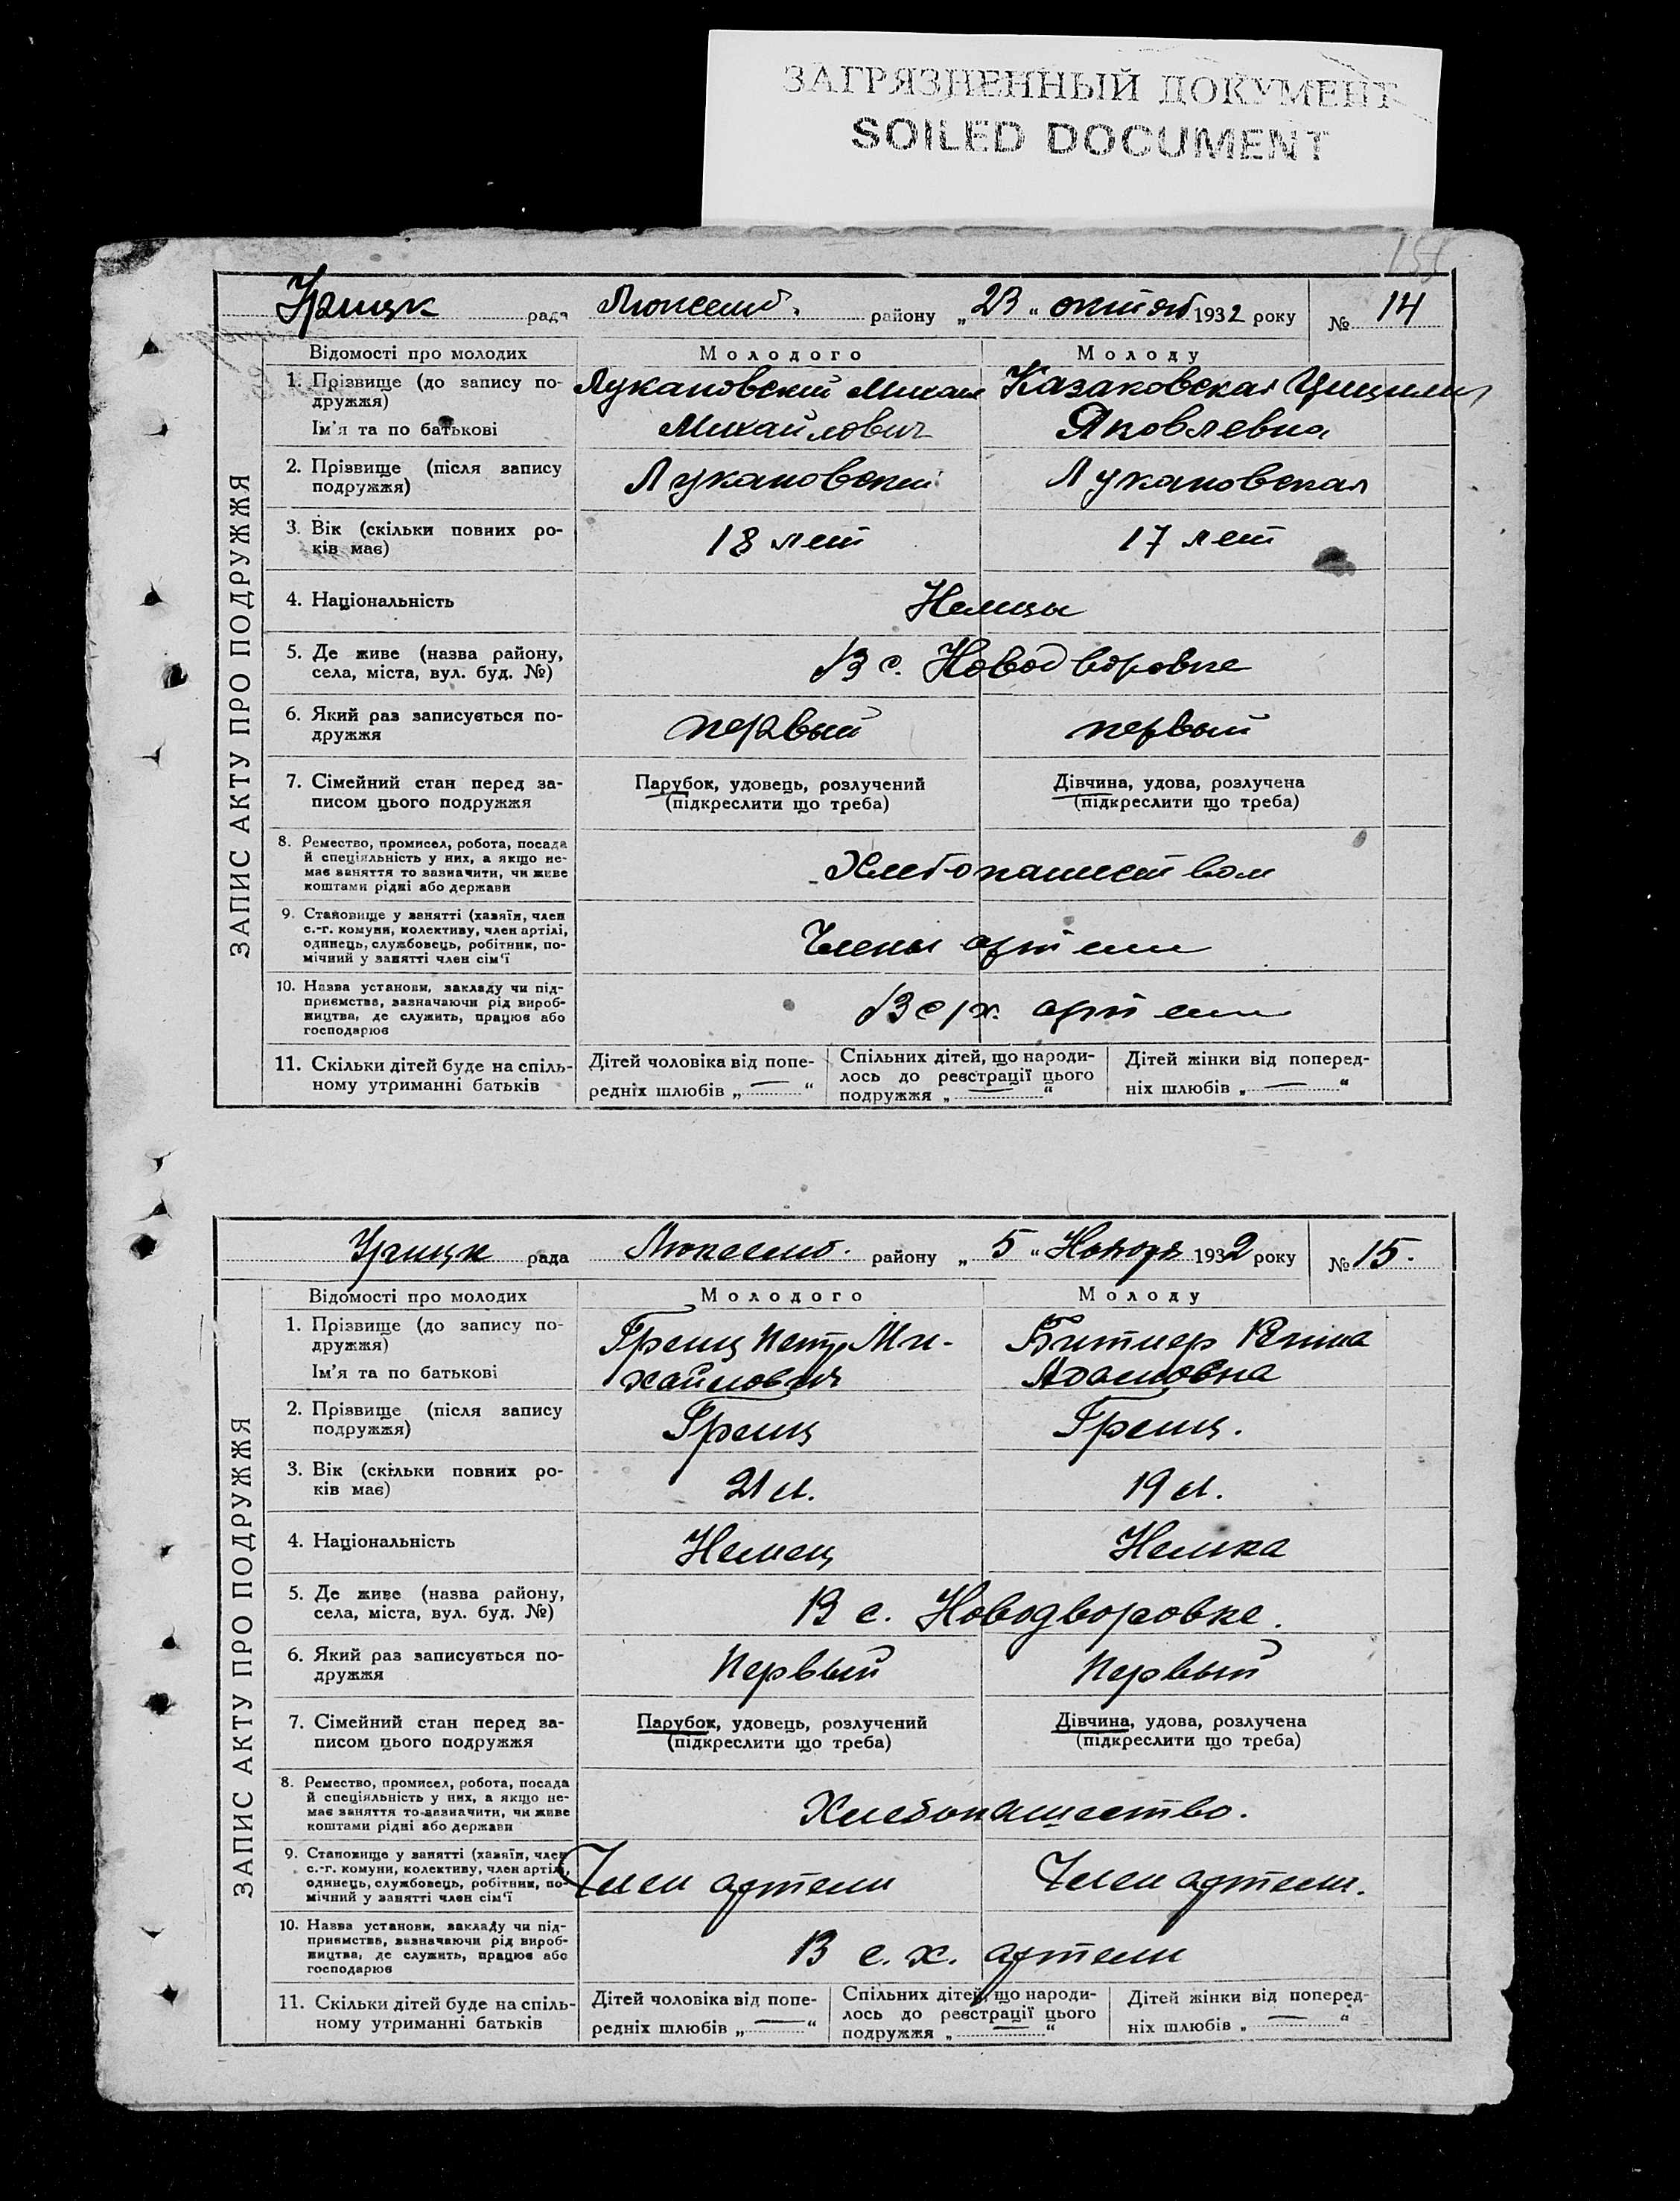 ЗАГРЯЗНЕННЫЙ ДОКУМЕНТ
SOILED DOCUMENT
Урицк рада Люксемб. району „23“ октяб 1932 року № 14
ЗАПИС АКТУ ПРО ПОДРУЖЖЯ
Відомості про молодих Молодого Молоду
1. Прізвище (до запису по- Лукановский Михаил Казаковская Цицилия
дружжя)
Ім'я та по батькові Михайлович Яковлевна
2. Прізвище (після запису Лукановский Лукановская
подружжя)
3. Вік (скільки повних ро- 18 лет 17 лет
ків має)
4. Національність Немцы
5. Де живе (назва району, В с. Новодворовке
села, міста, вул. буд. №)
6. Який раз записується по- первый первый
дружжя
7. Сімейний стан перед за- Парубок, удовець, розлучений Дівчина, удова, розлучена
писом цього подружжя (підкреслити що треба) (підкреслити що треба)
8. Ремество, промисел, робота, посада
й спеціяльність у них, а якщо не- Хлебопашеством
має заняття то зазначити, чи живе
коштами рідні або держави
9. Становище у занятті (хазяїн, член
с.-г. комуни, колективу, член артілі, Члены артели
одинець, службовець, робітник, по-
мічний у занятті член сім'ї
10. Назва установи, закладу чи під-
приємства, зазначаючи рід вироб- В с/х. артели
ництва, де служить, працює або
господарює
11. Скільки дітей буде на спіль- Дітей чоловіка від попе- Спільних дітей, що народи- Дітей жінки від поперед-
ному утриманні батьків редніх шлюбів „—“ лось до реєстрації цього ніх шлюбів „—“
подружжя „—“
Урицк рада Люксемб. району „5“ Ноября 1932 року № 15.
ЗАПИС АКТУ ПРО ПОДРУЖЖЯ
Відомості про молодих Молодого Молоду
1. Прізвище (до запису по- Гренц Петр Ми- Битнер
дружжя)
Ім'я та по батькові хайлович Адамовна
2. Прізвище (після запису Гренц Гренц.
подружжя)
3. Вік (скільки повних ро- 21 л. 19 л.
ків має)
4. Національність Немец Немка
5. Де живе (назва району, В с. Новодворовке.
села, міста, вул. буд. №)
6. Який раз записується по- Первый Первый
дружжя
7. Сімейний стан перед за- Парубок, удовець, розлучений Дівчина, удова, розлучена
писом цього подружжя (підкреслити що треба) (підкреслити що треба)
8. Ремество, промисел, робота, посада
й спеціяльність у них, а якщо не- Хлебопащество.
має заняття то зазначити, чи живе
коштами рідні або держави
9. Становище у занятті (хазяїн, член
с.-г. комуни, колективу, член артілі, Член артели Член артели.
одинець, службовець, робітник, по-
мічний у занятті член сім'ї
10. Назва установи, закладу чи під-
приємства, зазначаючи рід вироб- В с. х. артели
ництва, де служить, працює або
господарює
11. Скільки дітей буде на спіль- Дітей чоловіка від попе- Спільних дітей, що народи- Дітей жінки від поперед-
ному утриманні батьків редніх шлюбів „—“ лось до реєстрації цього ніх шлюбів „—“
подружжя „—“